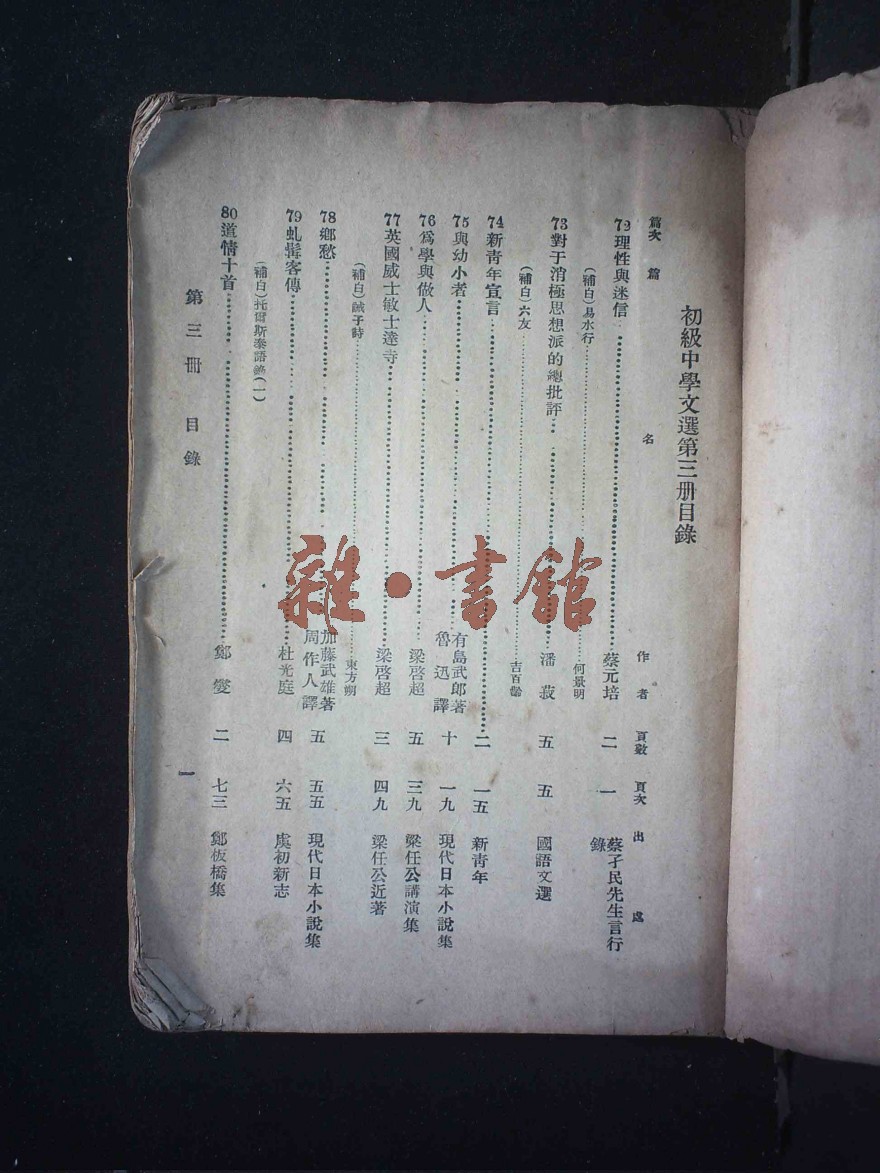 初級中學文選第三册目錄
篇次 篇 名 作者 頁數 頁次 出處
72 理性與迷信 蔡元培 二 一 蔡孑民先生言行錄
(補白)易水行 何景明
73 對于消極思想派的總批評 潘菽 五 五 國語文選
(補白)六友 吉百齡
74 新青年宣言 二 一五 新青年
75 與幼小者 有島武郎著 魯迅譯 十 一九 現代日本小說集
76 爲學與做人 梁啓超 五 三九 梁任公講演集
77 英國威士敏士達寺 梁啓超 三 四九 梁任公近著
(補白)誡子詩 東方朔
78 鄉愁 加藤武雄著 周作人譯 五 五五 現代日本小說集
79 虬髯客傳 杜光庭 四 六五 虞初新志
(補白)托爾斯泰語錄(一)
80 道情十首 鄭燮 二 七三 鄭板橋集
第三冊 目錄
一
雜·書館